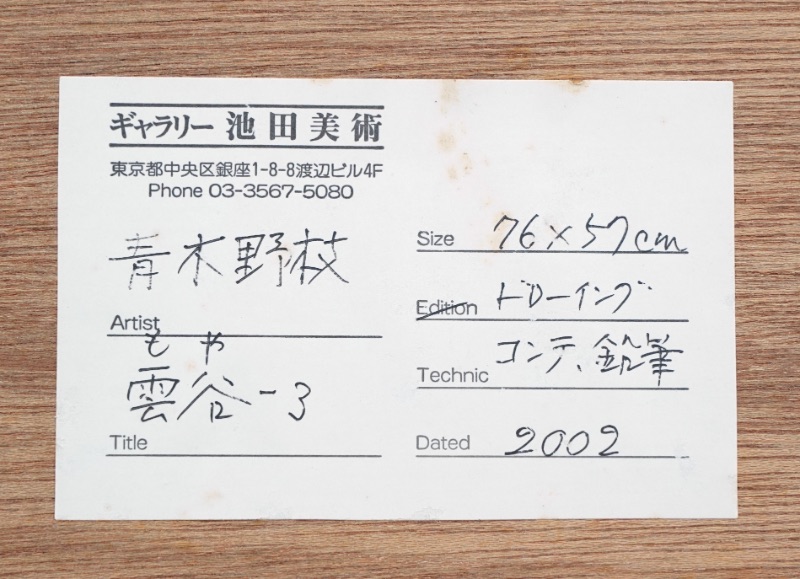 ギャラリー 池田美術
東京都中央区銀座1-8-8渡辺ビル4F
Phone 03-3567-5080
青木野枝
Artist
もや
雲谷-3
Title
Size 76×57cm
Edition ドローイング
Technic コンテ、鉛筆
Dated 2002